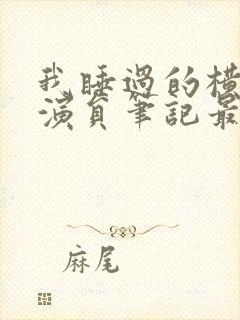 我睡過的橫
演員筆記最
麻尾